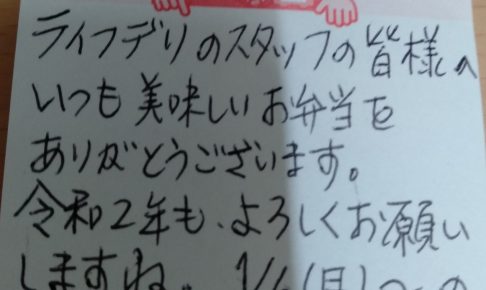 ライフデリのスタッフの皆様へ
いつも美味しいお弁当を
ありがとうございます。
令和2年も、よろしくお願い
しますね。